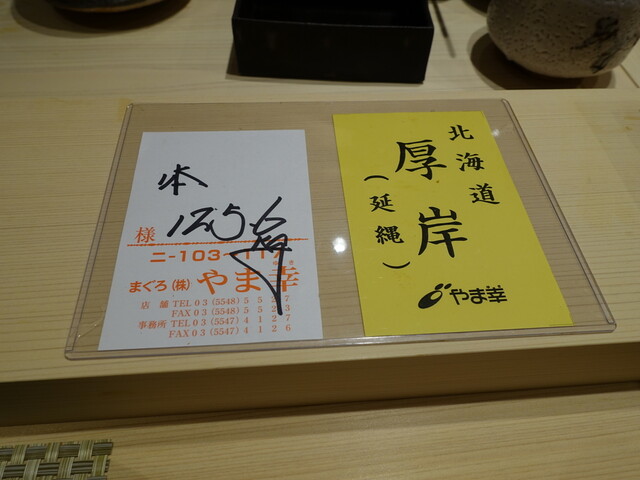 本
125
様
ニ-103-117
まぐろ(株)やま幸
店舗 TEL03(5548)5527
FAX03(5548)5523
事務所 TEL03(5547)4127
FAX03(5547)4126
北海道
厚岸
(延縄)
やま幸